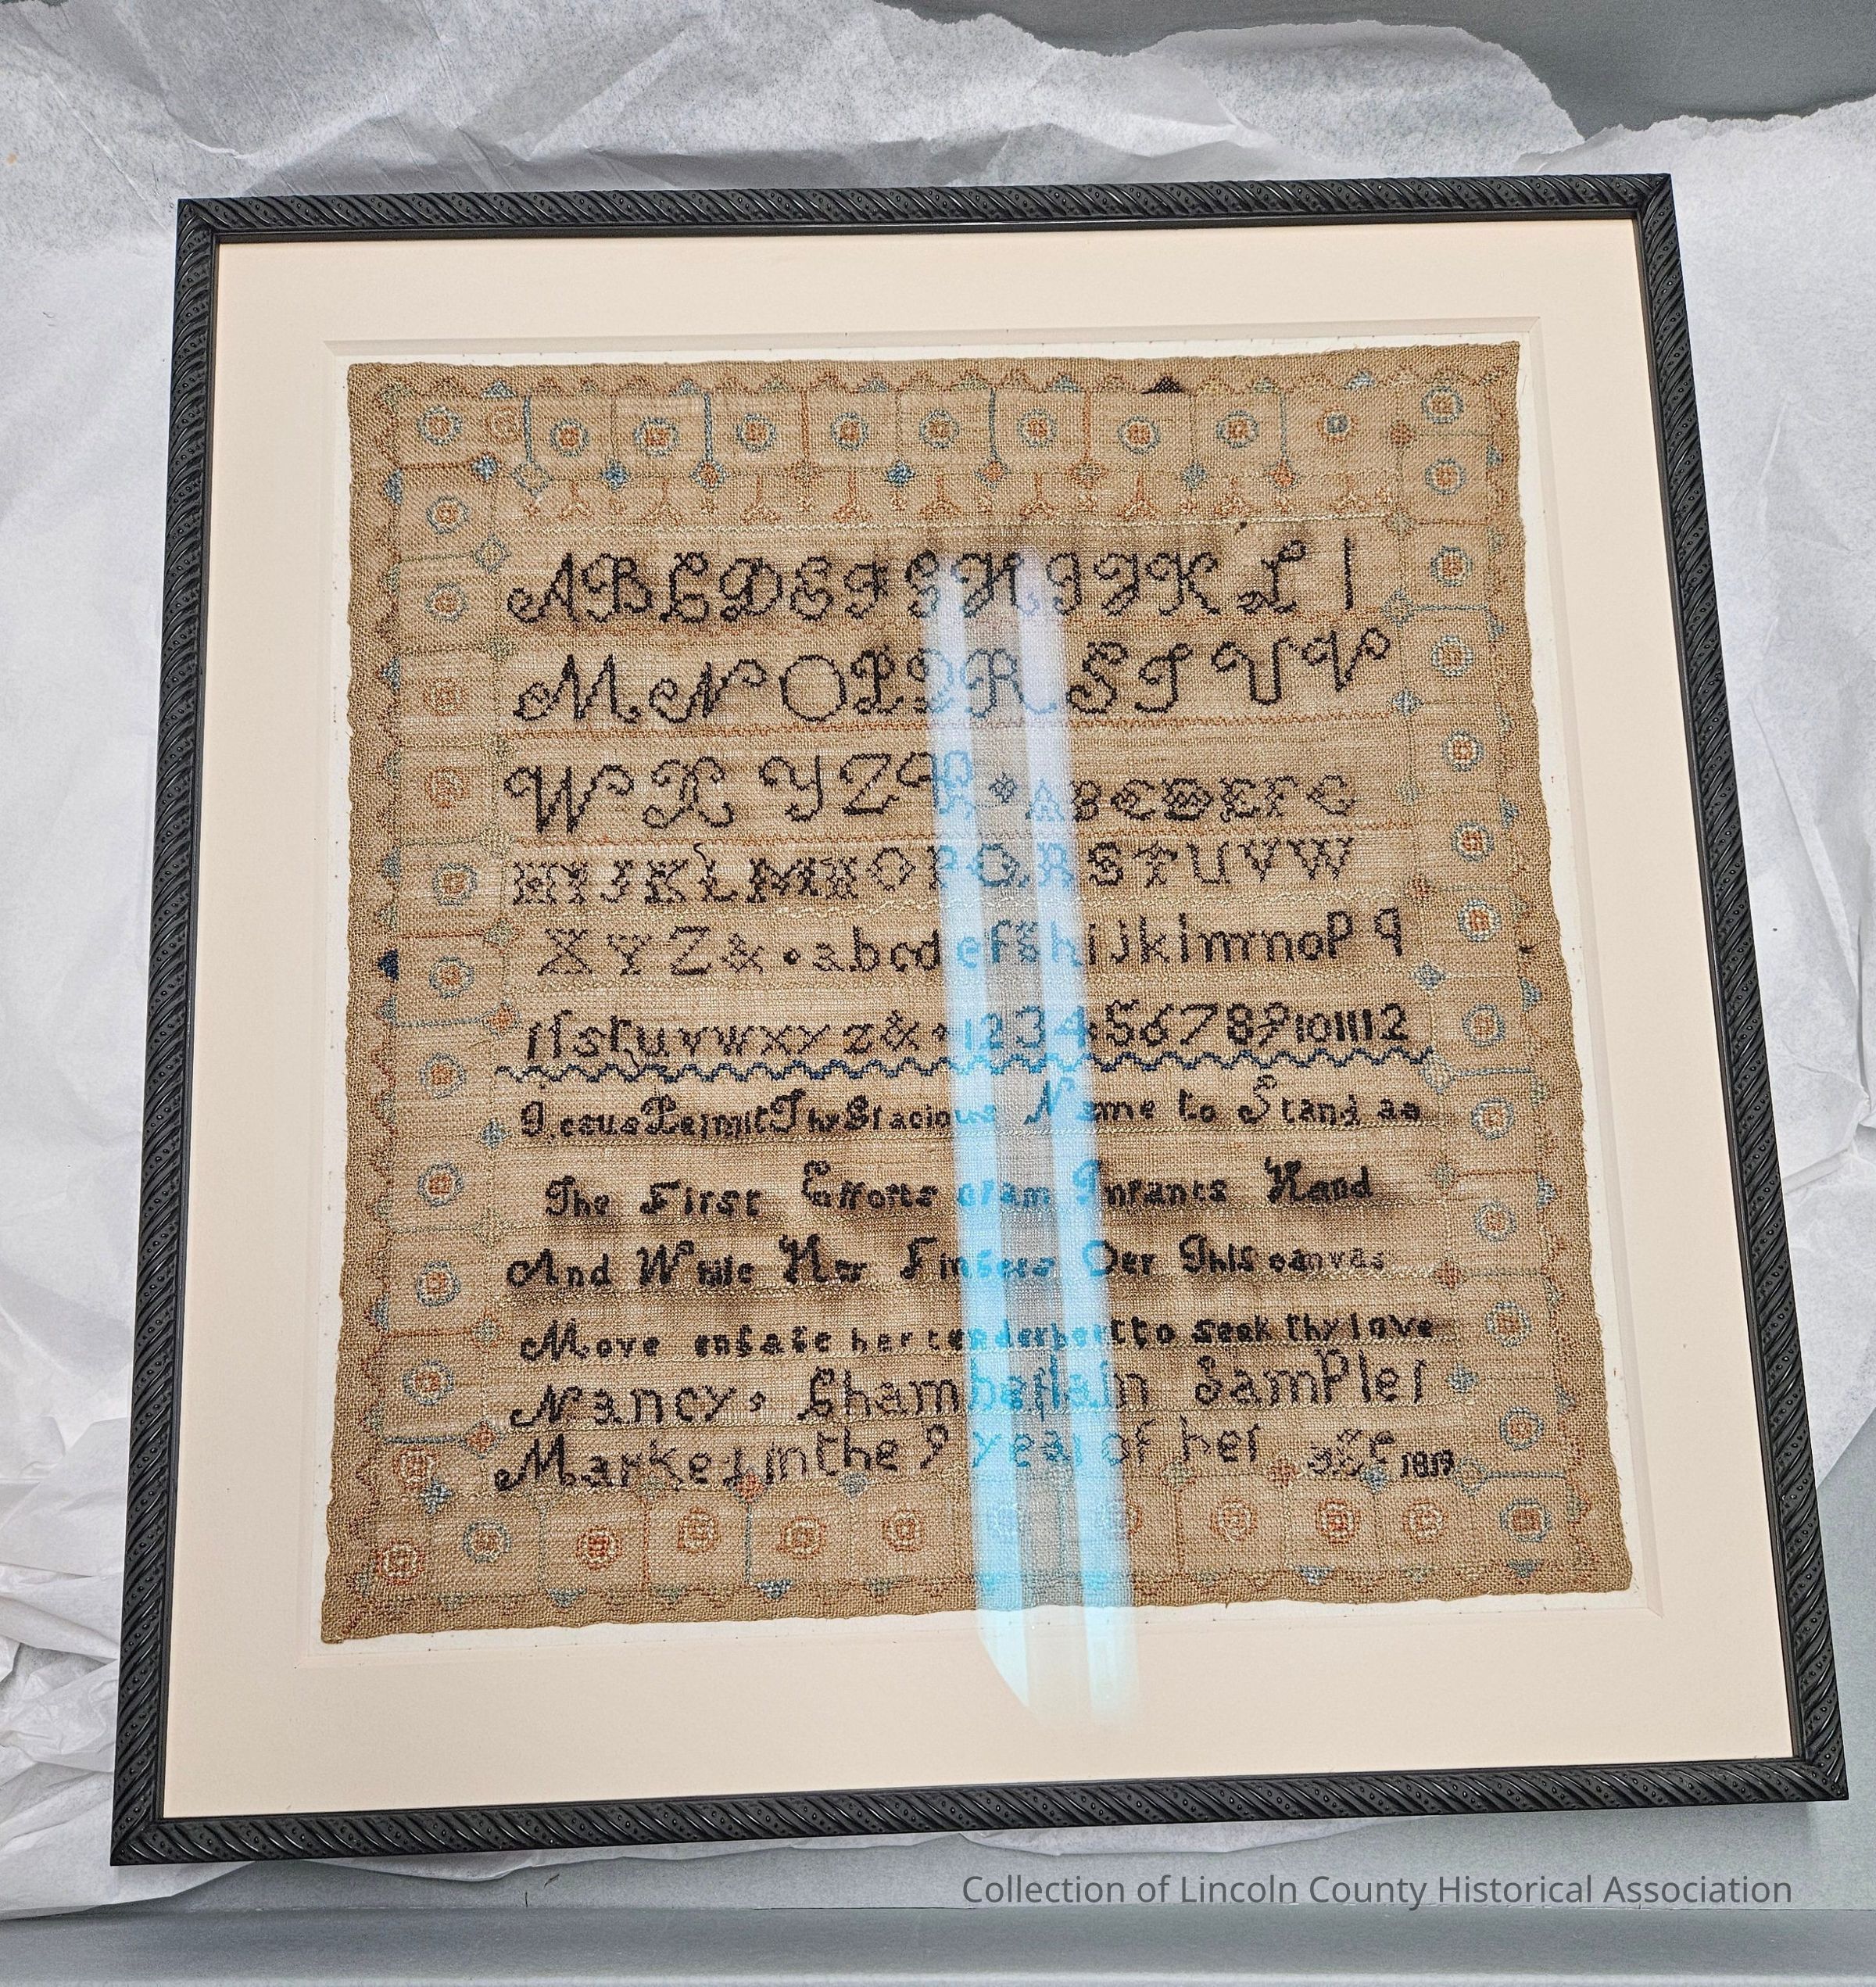 A B C D E F G H I J K L I
M N O P Q R S T U V
W X Y Z & A B C D E F G
H I J K L M N O P Q R S T U V W
X Y Z & a b c d e f g h i j k l m n o P q
r ſ s t u v w x y z & 1 2 3 4 5 6 7 8 9 10 11 12
Jesus Permit Thy Gracious Name to Stand as
The First Efforts of an Infants Hand
And While Her Fingers Oer This canvas
Move engage her tender hert to seek thy love
Nancy, Chamberlain SamPler
Marked in the 9 year of her age
Collection of Lincoln County Historical Association